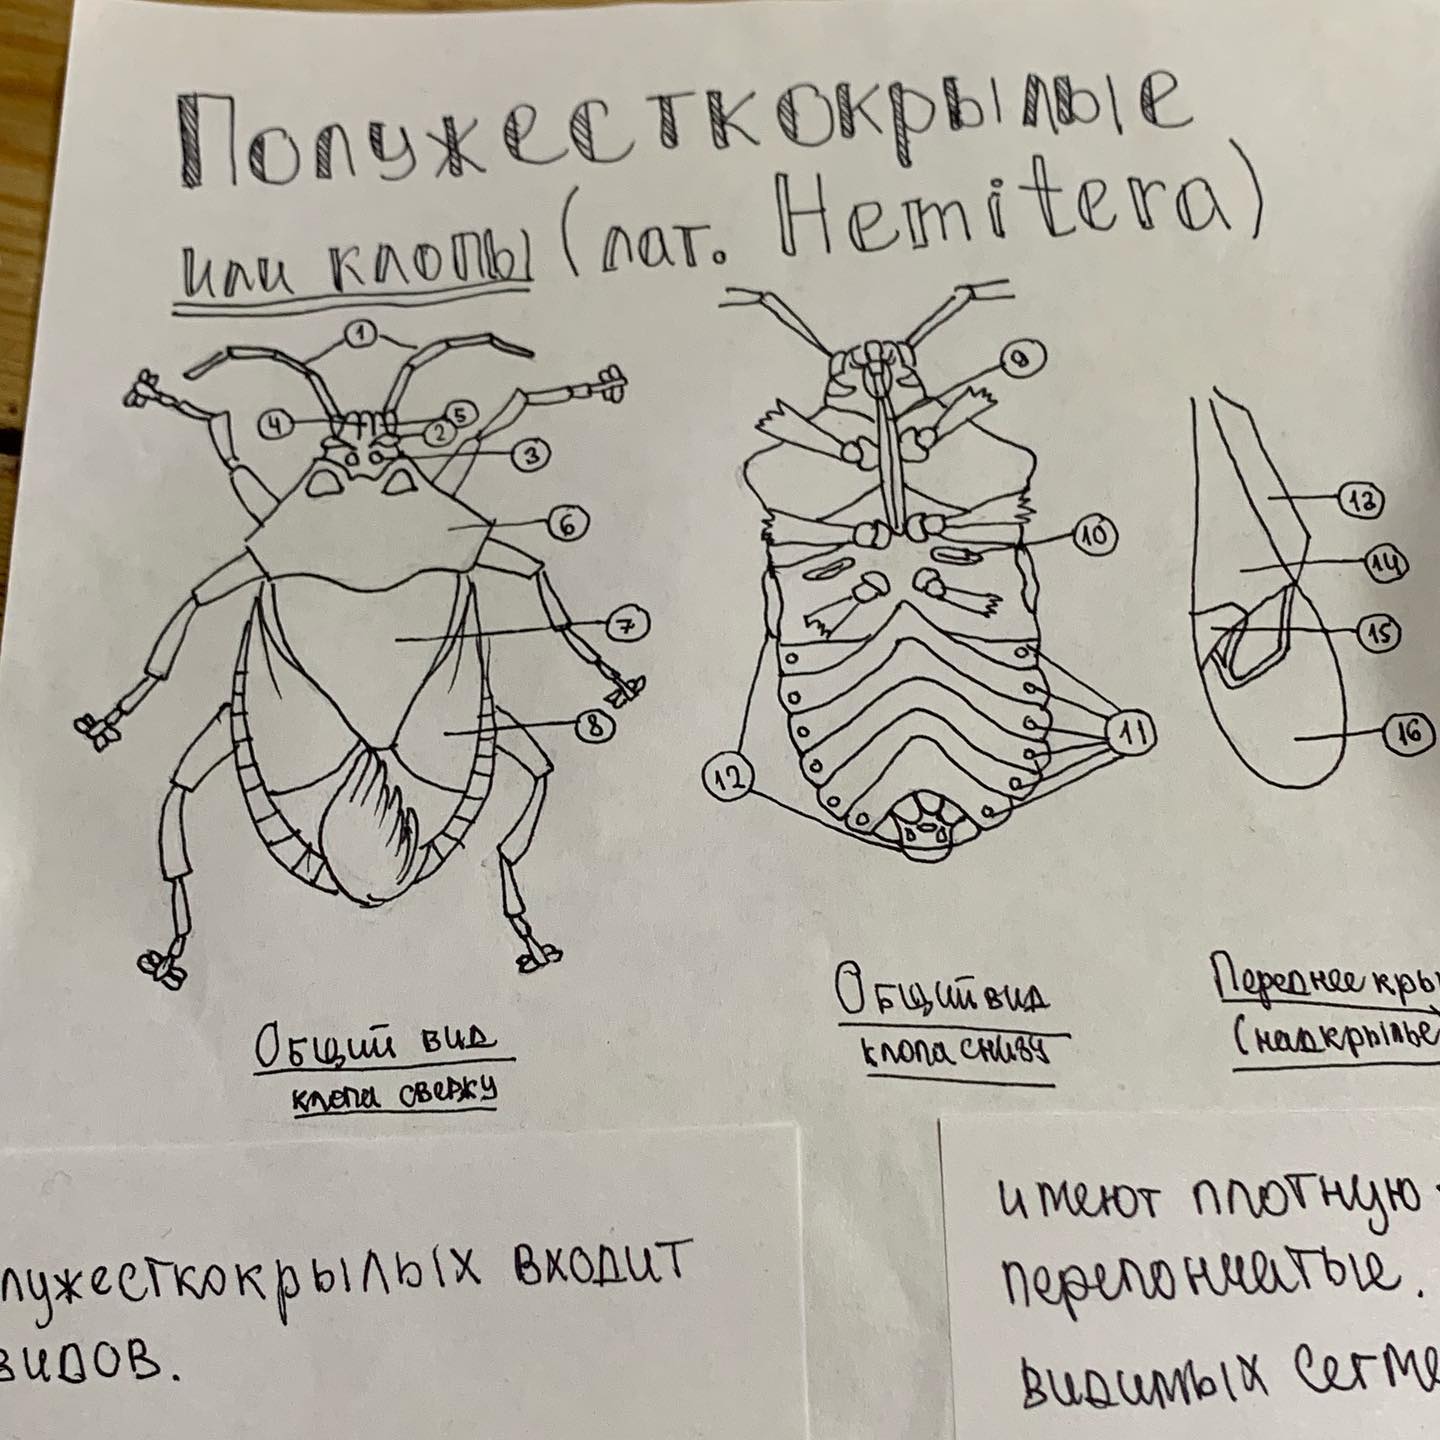 Полужесткокрылые
или клопы (лат. Hemitera)
1
4 5
2
3
6
7
8
9
10
11
12
13
14
15
16
Общий вид
клопа сверху
Общий вид
клопа снизу
Переднее кры
(надкрылье
лужесткокрылых входит
видов.
имеют плотную
перепончатые.
видимых сегме